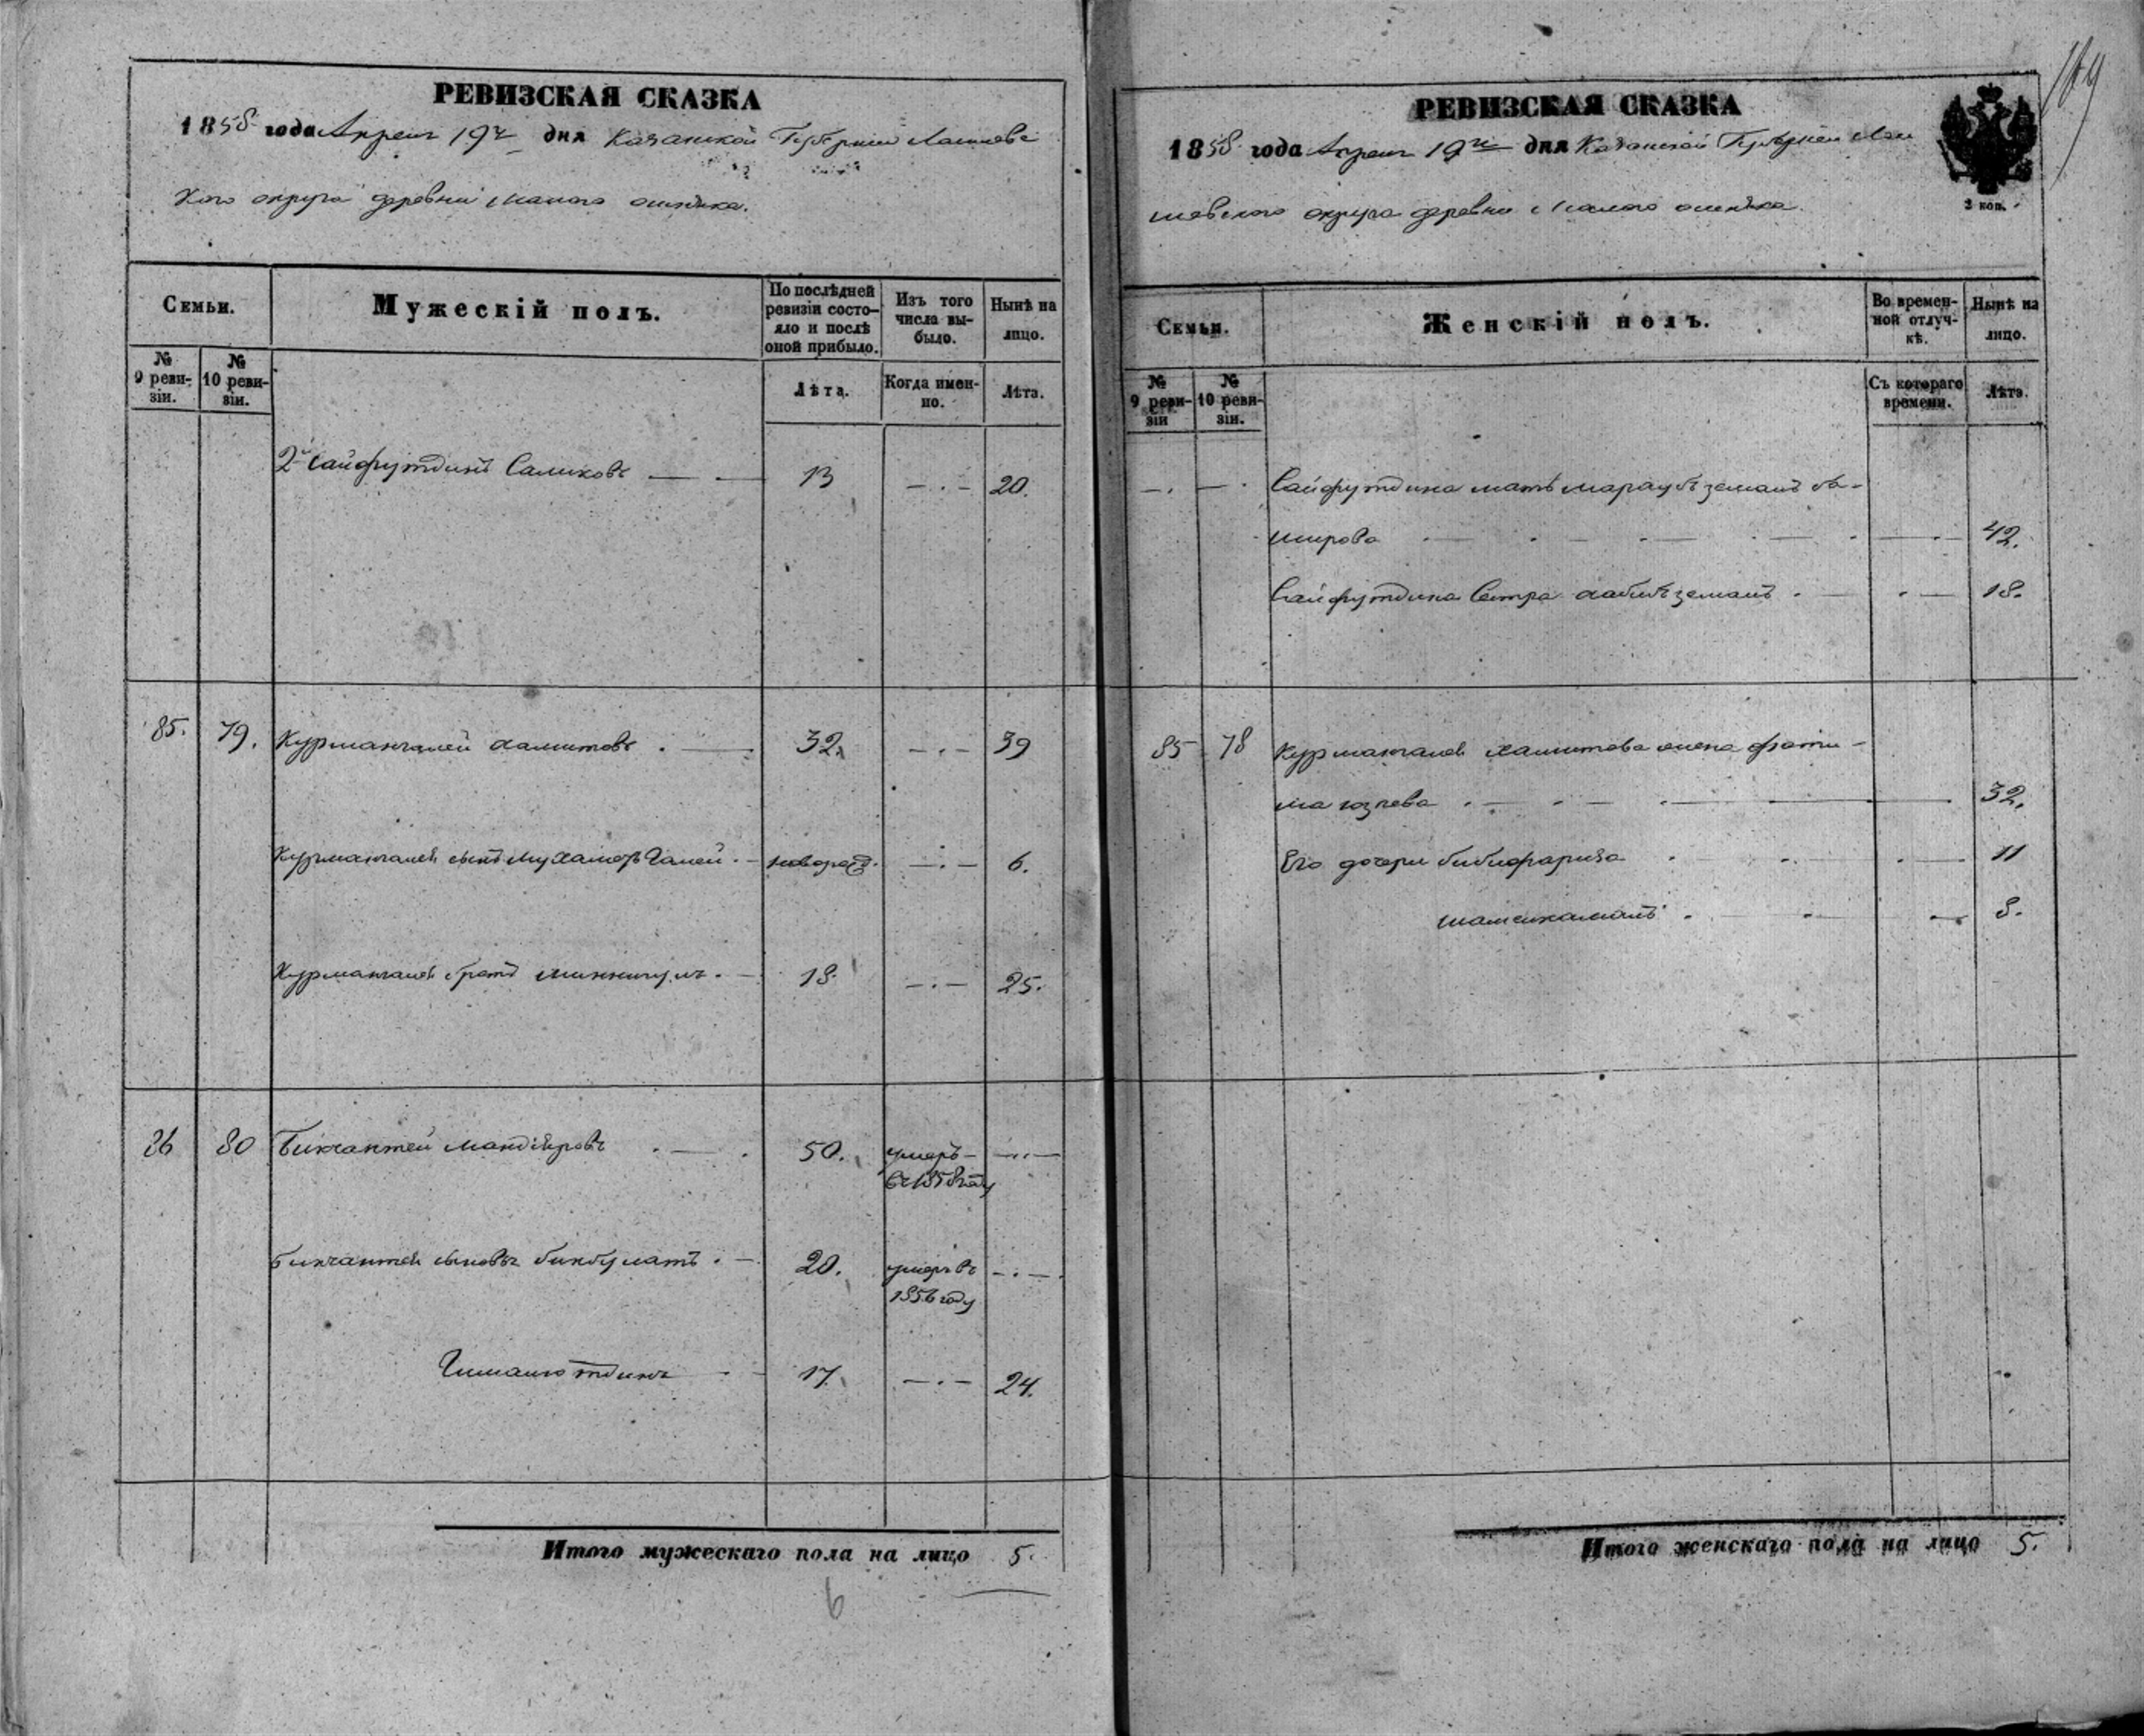 РЕВИЗСКАЯ СКАЗКА
1858 года Апреля 19го дня Казанской Губернии Лаишевс
кого округа деревни Малого
Семьи.
Мужескій полъ.
По послѣдней ревизіи состояло и послѣ оной прибыло.
Изъ того числа выбыло.
Нынѣ на лицо.
№ 9 ревизіи.
№ 10 ревизіи.
Лѣта.
Когда именно.
Лѣта.
2й Сайфутдинъ Салиховъ 13 20.
85. 79. Курмангалей Халитовъ 32. 39
Курмангалея сынъ Мухаметъ Галей новорож. 6.
Курмангалея братъ Миннигулъ 18 25.
86 80 Бикчантей 50. умеръ
въ 1858 году
Бикчантея сыновья Бикбулатъ 20. умеръ въ
1856 году
17. 24.
Итого мужескаго пола на лицо 5.
6
РЕВИЗСКАЯ СКАЗКА
1858 года Апреля 19го дня Казанской Губернии Лаи
шевского округа деревни Малого
2 коп.
169
Семьи.
Женскій полъ.
Во временной отлучкѣ.
Нынѣ на лицо.
№ 9 ревизіи
№ 10 ревизіи.
Съ котораго времени.
Лѣта.
Сайфутдина мать
42.
Сайфутдина Сестра 18.
85 78 Курмангалея Халитова жена Фати-
ма 32.
Его дочери Бибифариза 11
Шамсикамалъ 8.
Итого женскаго пола на лицо 5.